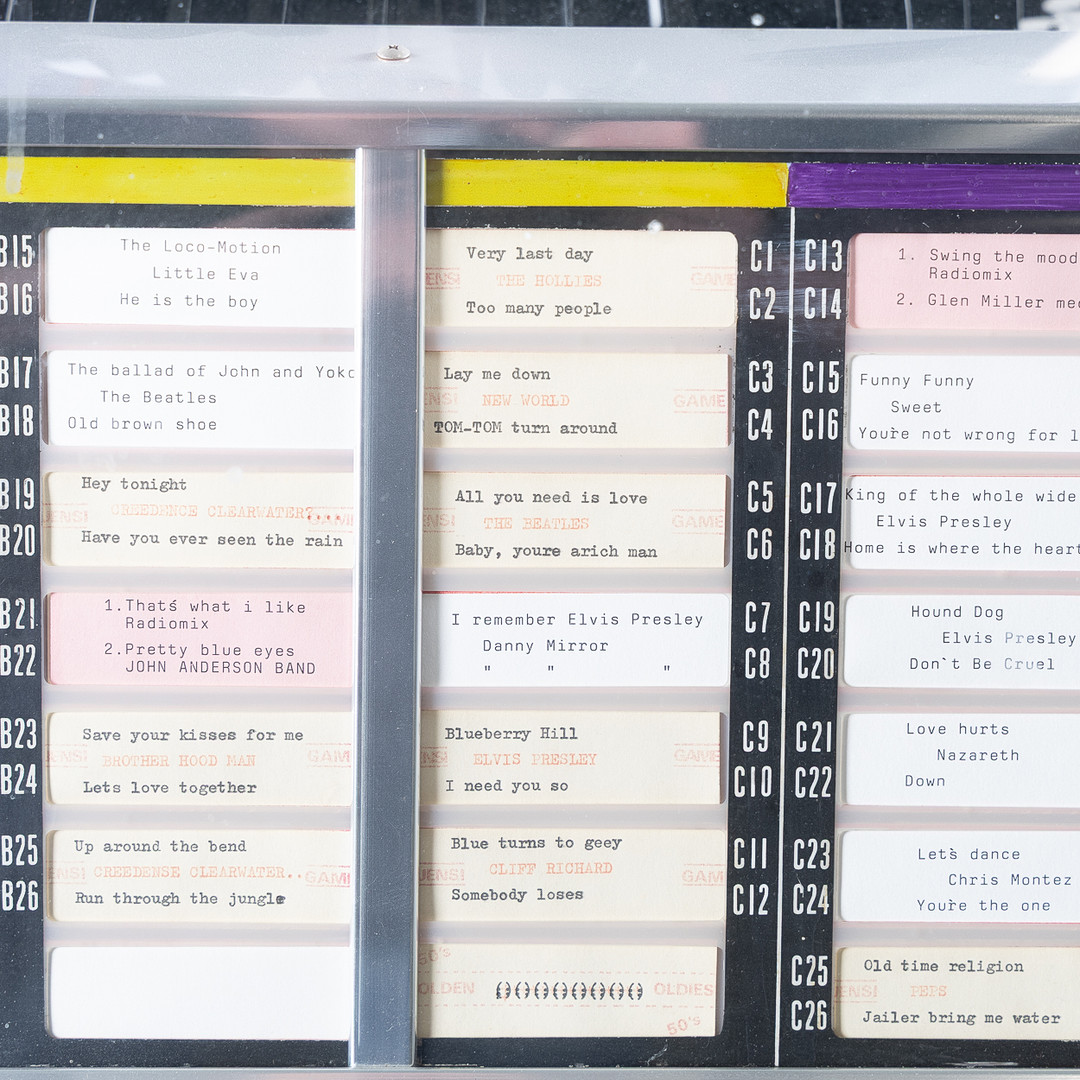 B15
The Loco-Motion
Little Eva
B16
He is the boy
B17
The ballad of John and Yoko
The Beatles
B18
Old brown shoe
B19
Hey tonight
JENSI CREEDENCE CLEARWATER?.... GAME
B20
Have you ever seen the rain
B21
1.Thatś what i like
Radiomix
B22
2.Pretty blue eyes
JOHN ANDERSON BAND
B23
Save your kisses for me
JENSI BROTHER HOOD MAN GAM
B24
Lets love together
B25
Up around the bend
ENSI CREEDENSE CLEARWATER.. GAMI
B26
Run through the jungle
Very last day
C1
ENSI THE HOLLIES GAME
Too many people
C2
Lay me down
C3
ENSI NEW WORLD GAME
TOM-TOM turn around
C4
All you need is love
C5
ENSI THE BEATLES GAME
Baby, youre arich man
C6
I remember Elvis Presley
C7
Danny Mirror
" " "
C8
Blueberry Hill
C9
ENSI ELVIS PRESLEY GAME
I need you so
C10
Blue turns to geey
C11
JENSI CLIFF RICHARD GAM
Somebody loses
C12
50's
OLDEN OLDIES
50's
C13
1. Swing the mood
Radiomix
C14
2. Glen Miller med
C15
Funny Funny
Sweet
C16
You're not wrong for l
C17
King of the whole wide
Elvis Presley
C18
Home is where the heart
C19
Hound Dog
Elvis Presley
C20
Don`t Be Cruel
C21
Love hurts
Nazareth
C22
Down
C23
Let`s dance
Chris Montez
C24
You`re the one
C25
Old time religion
ENSI PEPS
C26
Jailer bring me water